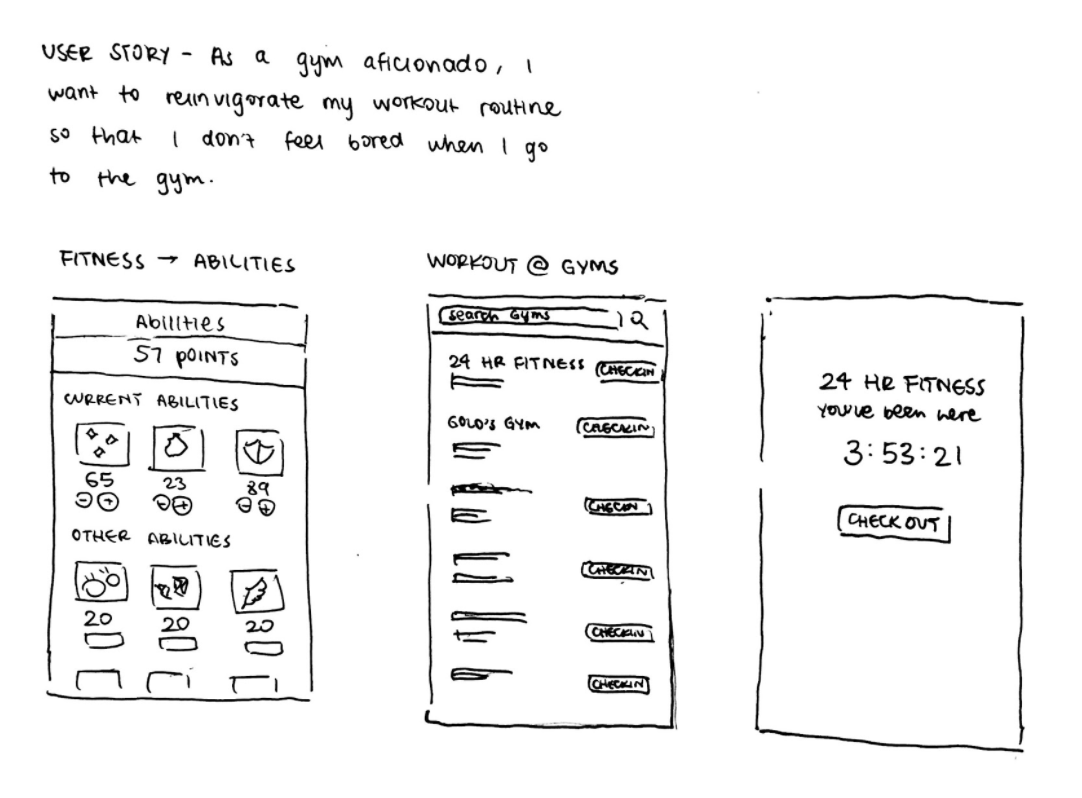 USER STORY - As a gym aficionado, I
want to reinvigorate my workout routine
so that I don't feel bored when I go
to the gym.
FITNESS → ABILITIES
Abilities
57 POINTS
CURRENT ABILITIES
65 23 89
- + - + - +
OTHER ABILITIES
20 20 20
WORKOUT @ GYMS
Search Gyms
24 HR FITNESS CHECKIN
GOLD'S GYM CHECKIN
CHECKIN
CHECKIN
CHECKIN
CHECKIN
24 HR FITNESS
You've been here
3:53:21
CHECK OUT